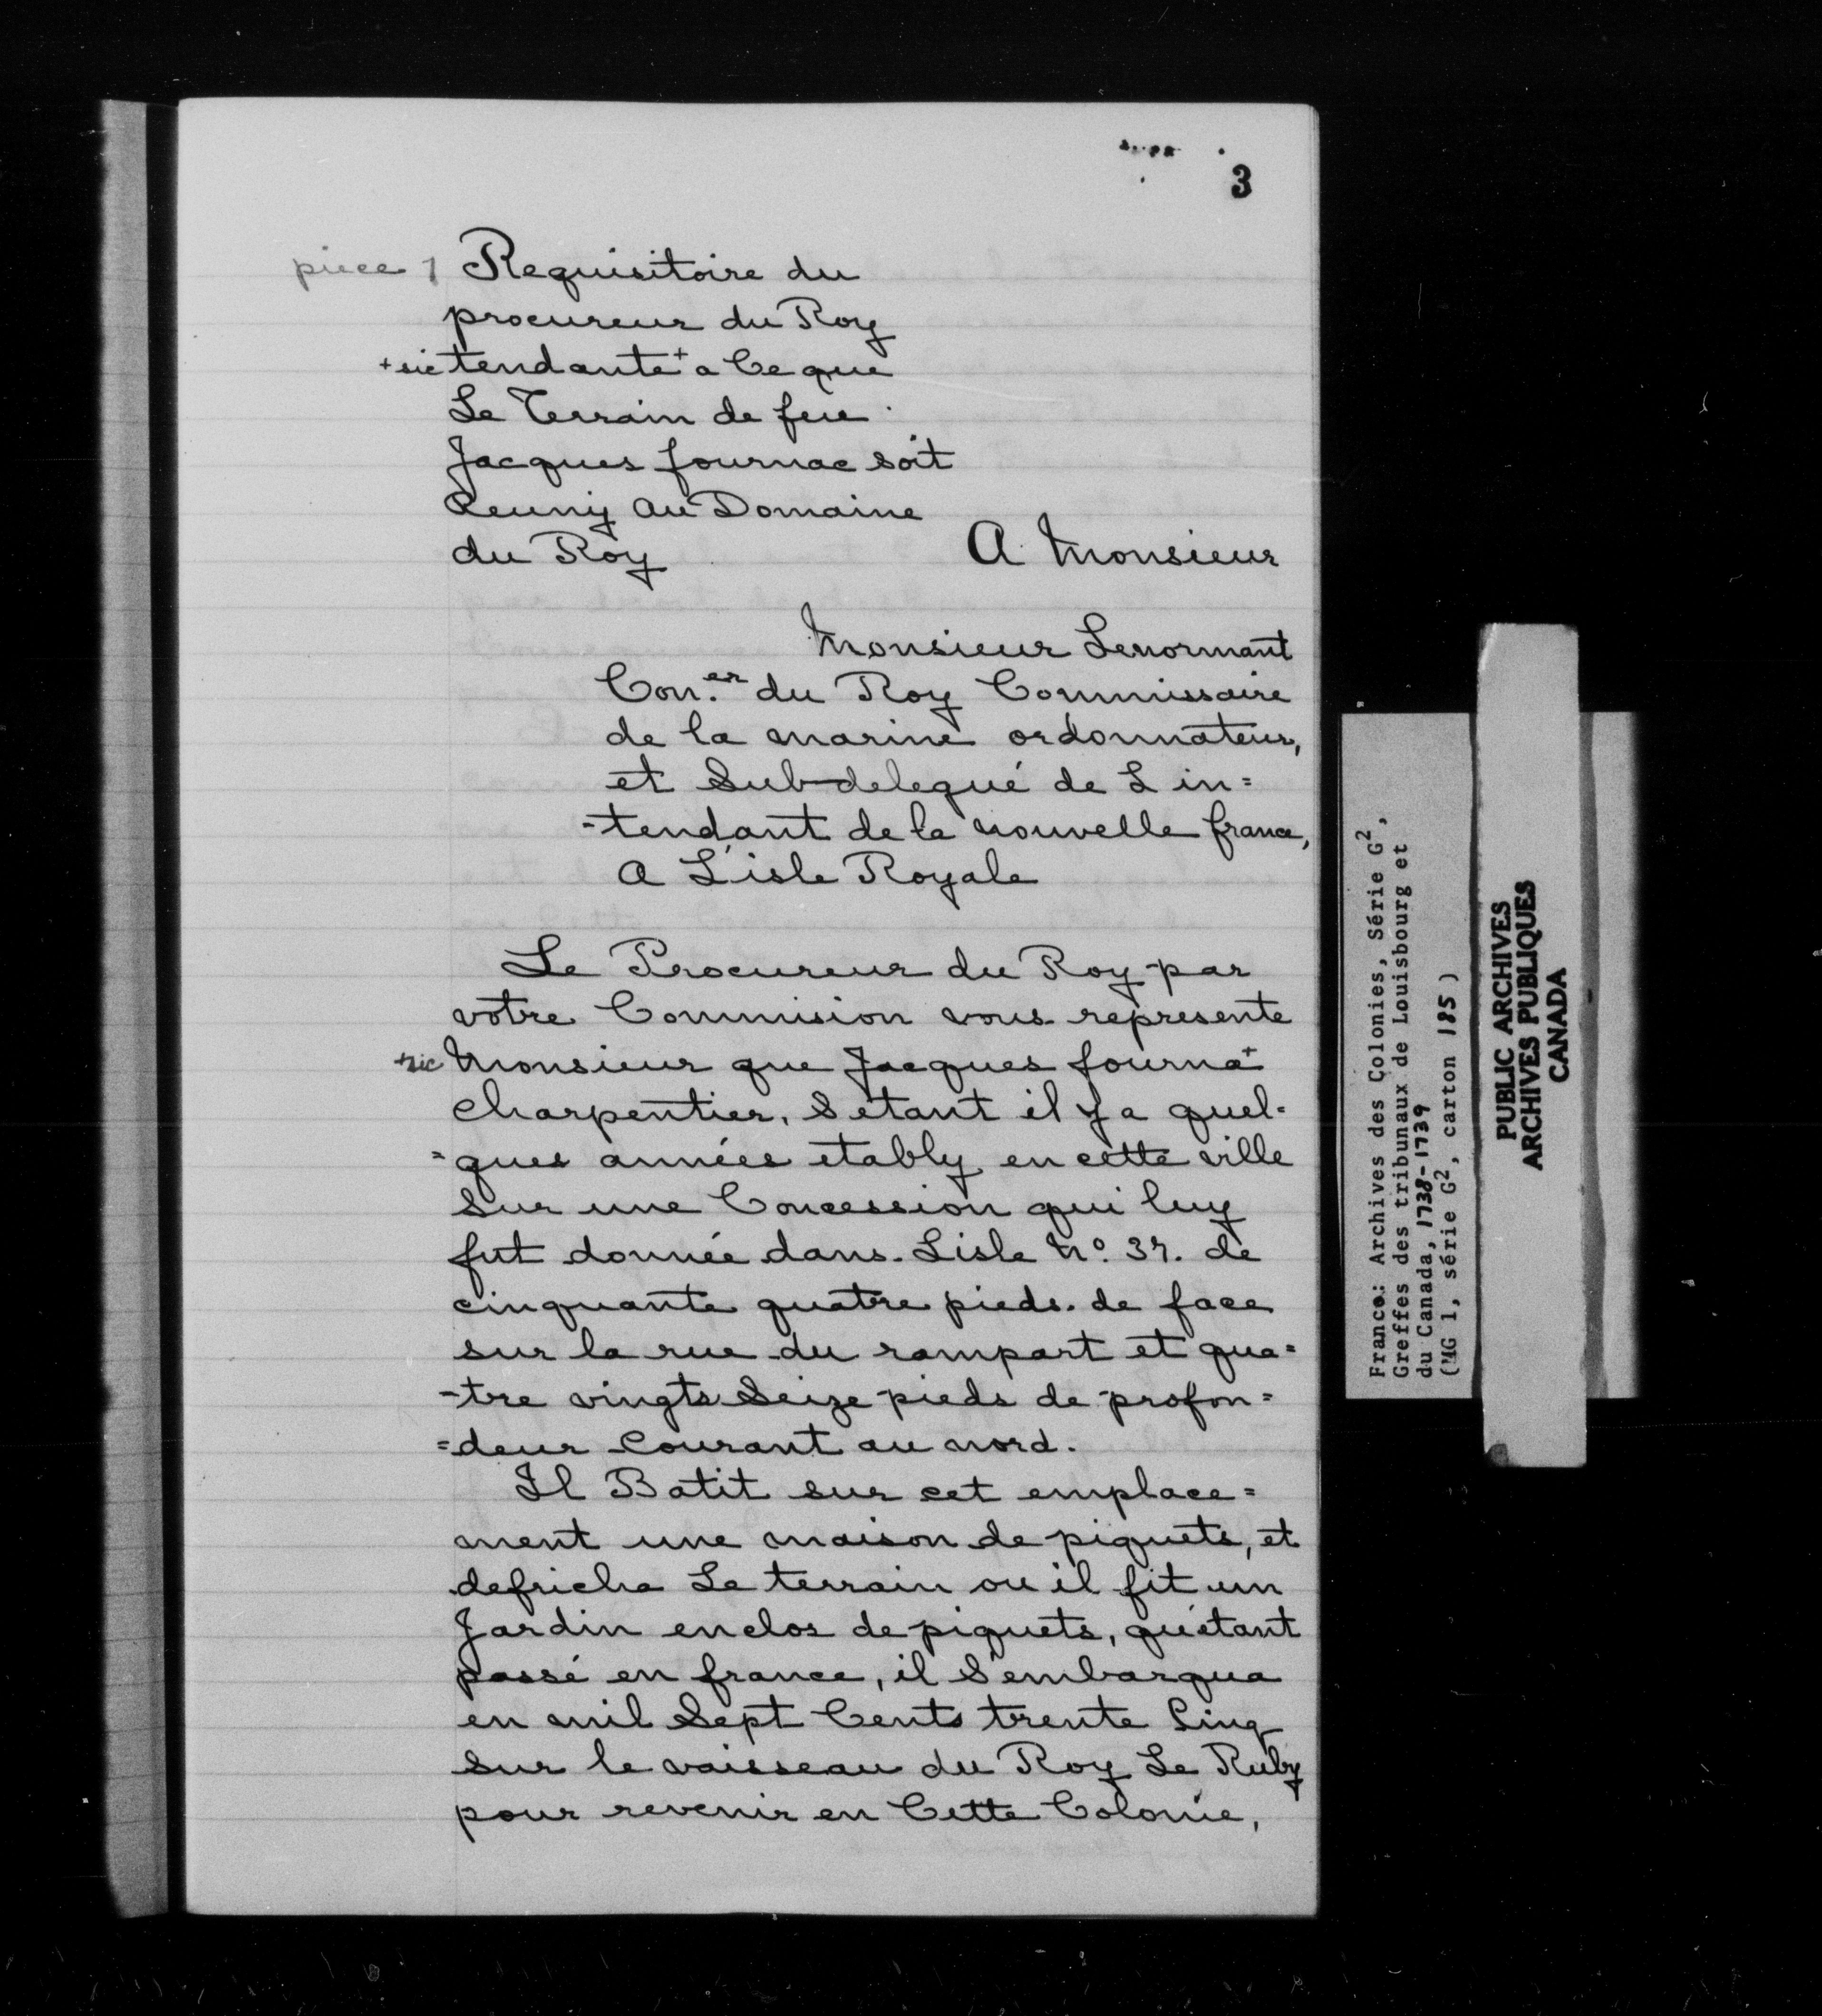 3
piece 1 Requisitoire du
procureur du Roy
+sic tendante+ a Ce que
Le Terrain de feu
Jacques fournac soit
Reuny au Domaine
du Roy
A Monsieur
Monsieur Lenormant
Con.er du Roy Commissaire
de la marine ordonnateur,
et Subdelegué de L in=
-tendant de la nouvelle france,
a L'isle Royale
Le Procureur du Roy par
votre Commision vous represente
+sic Monsieur que Jacques fourna+
charpentier, Setant il y a quel=
=ques années etably en cette ville
Sur une Concession qui luy
fut donnée dans Lisle No. 37. de
cinquante quatre pieds de face
sur la rue du rampart et qua=
-tre vingts Seize pieds de profon=
=deur Courant au nord.
Il Batit sur cet emplace=
ment une maison de piquets, et
defricha Le terrain ou il fit un
Jardin enclos de piquets, qu'étant
passé en france, il S'embarqua
en mil Sept Cents trente Cinq
Sur le vaisseau du Roy Le Ruby
pour revenir en Cette Colonie,
France: Archives des Colonies, Série G2,
Greffes des tribunaux de Louisbourg et
du Canada, 1738-1739
(MG 1, série G2, carton 185)
PUBLIC ARCHIVES
ARCHIVES PUBLIQUES
CANADA